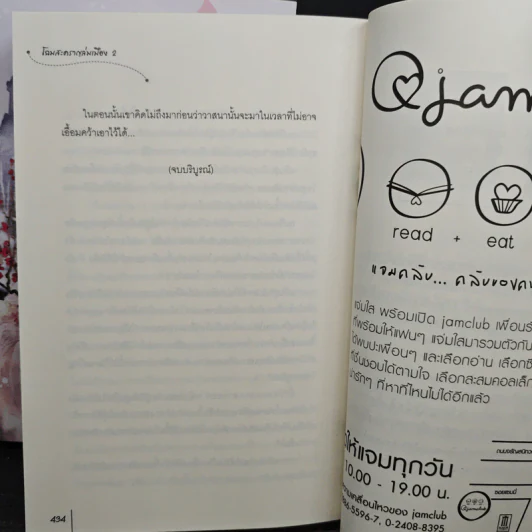 โฉมสะคราญล่มเมือง 2
ในตอนนั้นเขาคิดไม่ถึงมาก่อนว่าวาสนานั้นจะมาในเวลาที่ไม่อาจ
เอื้อมคว้าเอาไว้ได้...
(จบบริบูรณ์)
434
jam
read + eat
แจมคลับ... คลับของคน
แจ่มใส พร้อมเปิด jamclub เพื่อนรั
ที่พร้อมให้แฟนๆ แจ่มใสมารวมตัวกัน
ได้พบปะเพื่อนๆ และเลือกอ่าน เลือกซื
ที่ชื่นชอบได้ตามใจ เลือกสะสมคอลเล็ก
น่ารักๆ ที่หาที่ไหนไม่ได้อีกแล้ว
ให้แจมทุกวัน
10.00 - 19.00 น.
ความเคลื่อนไหวของ jamclub
86-5596-7, 0-2408-8395